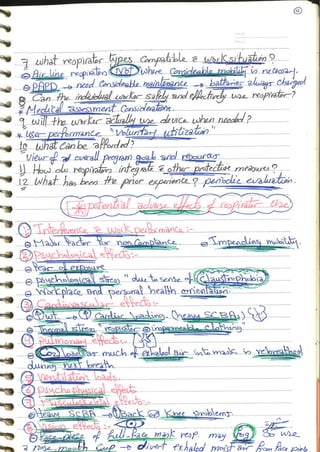 7 what respirator types compatible c̄ work situation?
Air line respirators (NOT) where considerable mobility is necessary.
PAPD → need considerable maintenance → batteries always charged
8 Can the individual worker safely and effectively use respirator?
* Medical assessment Considerations.
9 will the worker actually use device when needed?
* User performance "Voluntary utilization"
10 what can be afforded?
View of overall program goals and resources
11 How do respirators integrate c̄ other protective measures?
12 What has been the prior experience? periodic evaluation.
potential adverse effects of respirator use
1 Interference c̄ work performance:-
Major factor for non compliance. Impending mobility.
2 Psychological effects:-
Year of exposure
psychological stress "due to sense of Claustrophobia
Workplace and personal health orientation
3 Cardiovascular effects:-
Wt. → Cardiac loading. (heavy SCBA)
Thermal stress respirator impermeable clothing
4 Pulmonary effects:
CO2 load as much of exhaled air into mask is rebreathed
during next breath
5 Ventilation loads.
6 Psychophysical effects
7 Musculoskeletal effects:-
Heavy SCBA → Back Knee problems.
8 Vision effects:-
Face-piece of full-face mask resp. may Fog So use
a nose-mouth Cup → divert exhaled moist air from face piece.